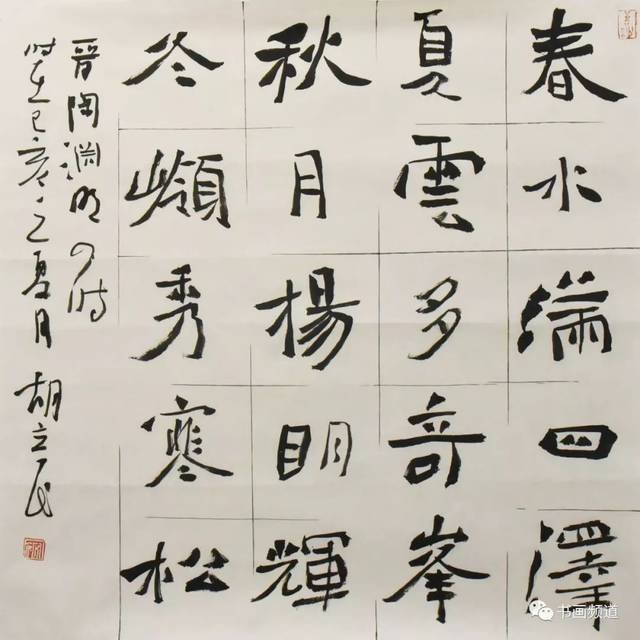 春水滿四澤
夏雲多奇峯
秋月揚明輝
冬嶺秀寒松
晋陶淵明四時
时在己亥之夏月 胡立民
书画频道